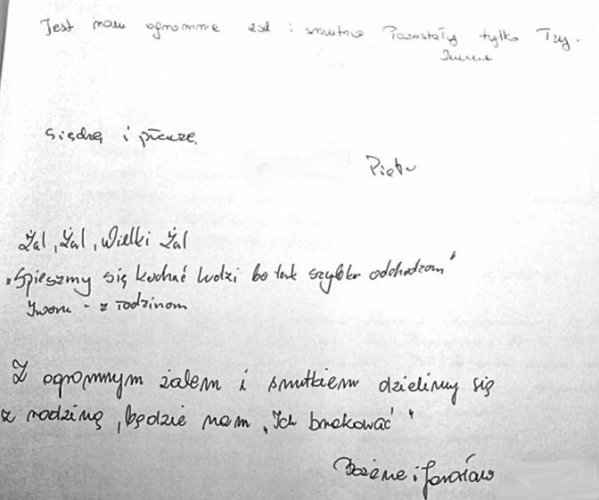 Jest nam ogromnie żal i smutno Pozostały tylko Łzy.
Siedzę i płaczę.
Piotr
Żal, Żal, Wielki Żal
„Spieszmy się kochać ludzi bo tak szybko odchodzom"
Iwona - z rodzinom
Z ogromnym żalem i smutkiem dzielimy się
z rodziną, będzie nam „Ich brakować"
Bożena i Jarosław